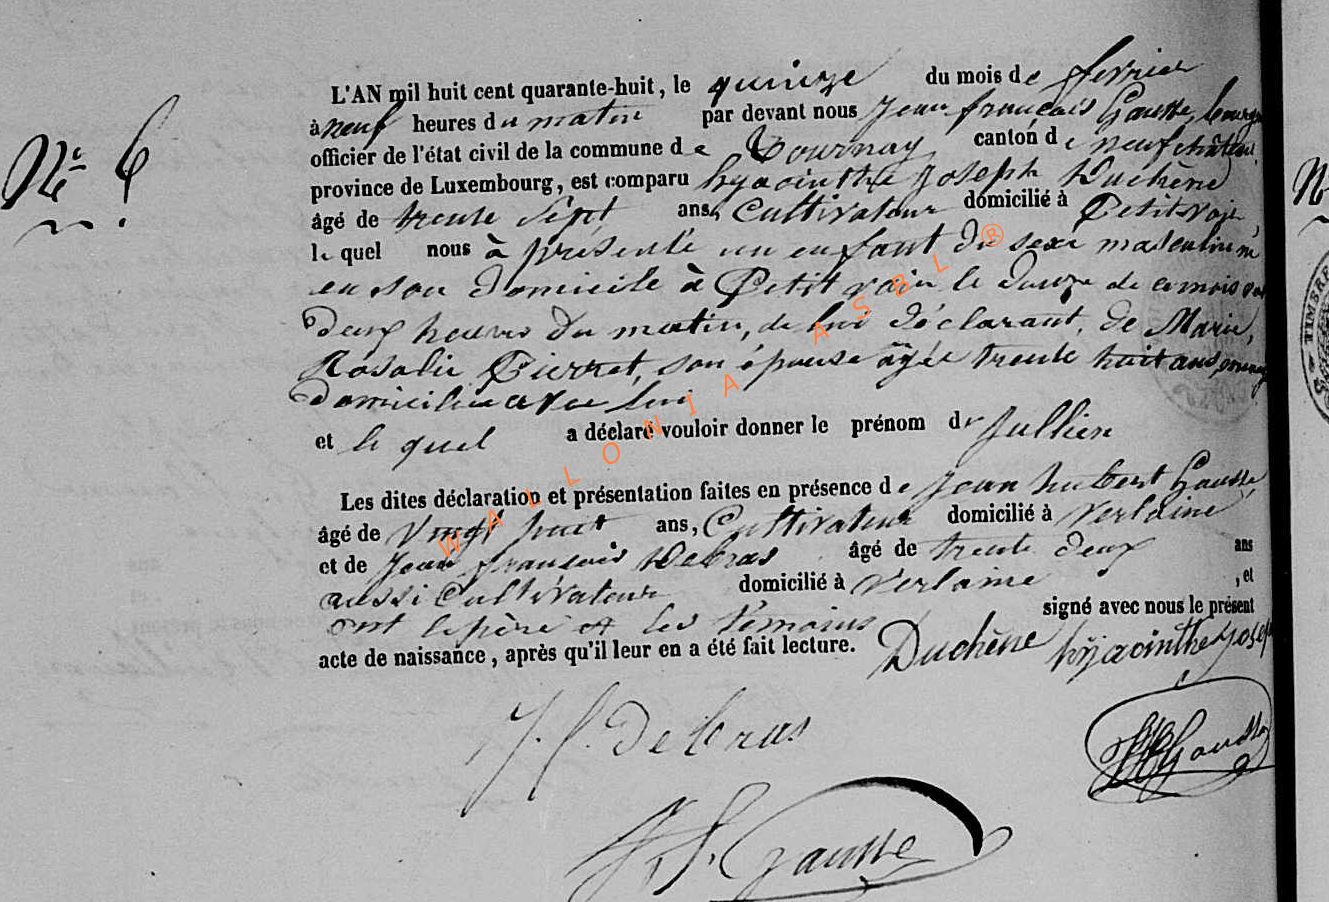 N° 6
L'AN mil huit cent quarante-huit, le quinze du mois de fevrier
à neuf heures du matin par devant nous Jean françois Gausse, bourgm
officier de l'état civil de la commune de Tournay canton de neufchâteau
province de Luxembourg, est comparu hyacinthe Joseph Duchène
âgé de trente sept ans, Cultivateur domicilié à Petitvoir
le quel nous à présenté un enfant du sexe masculin né
en son domicile à Petitvoir le douze de ce mois
deux heures du matin, de lui déclarant, de Marie,
Rosalie Pierret, son épouse âgée trente huit ans,
domiciliée avec lui
et le quel a déclaré vouloir donner le prénom de Jullien
Les dites déclaration et présentation faites en présence de Jean hubert Gausse
âgé de Vingt huit ans, Cultivateur domicilié à Verlaine
et de Jean françois Debras âgé de trente deux ans
aussi Cultivateur domicilié à Verlaine , et
ont le père et les témoins signé avec nous le présent
acte de naissance, après qu'il leur en a été fait lecture. Duchène hyjacinthe Josep
J. f. Debras
Gausse
J. f. Gausse
WALLONIA ASBL ®
TIMBRE